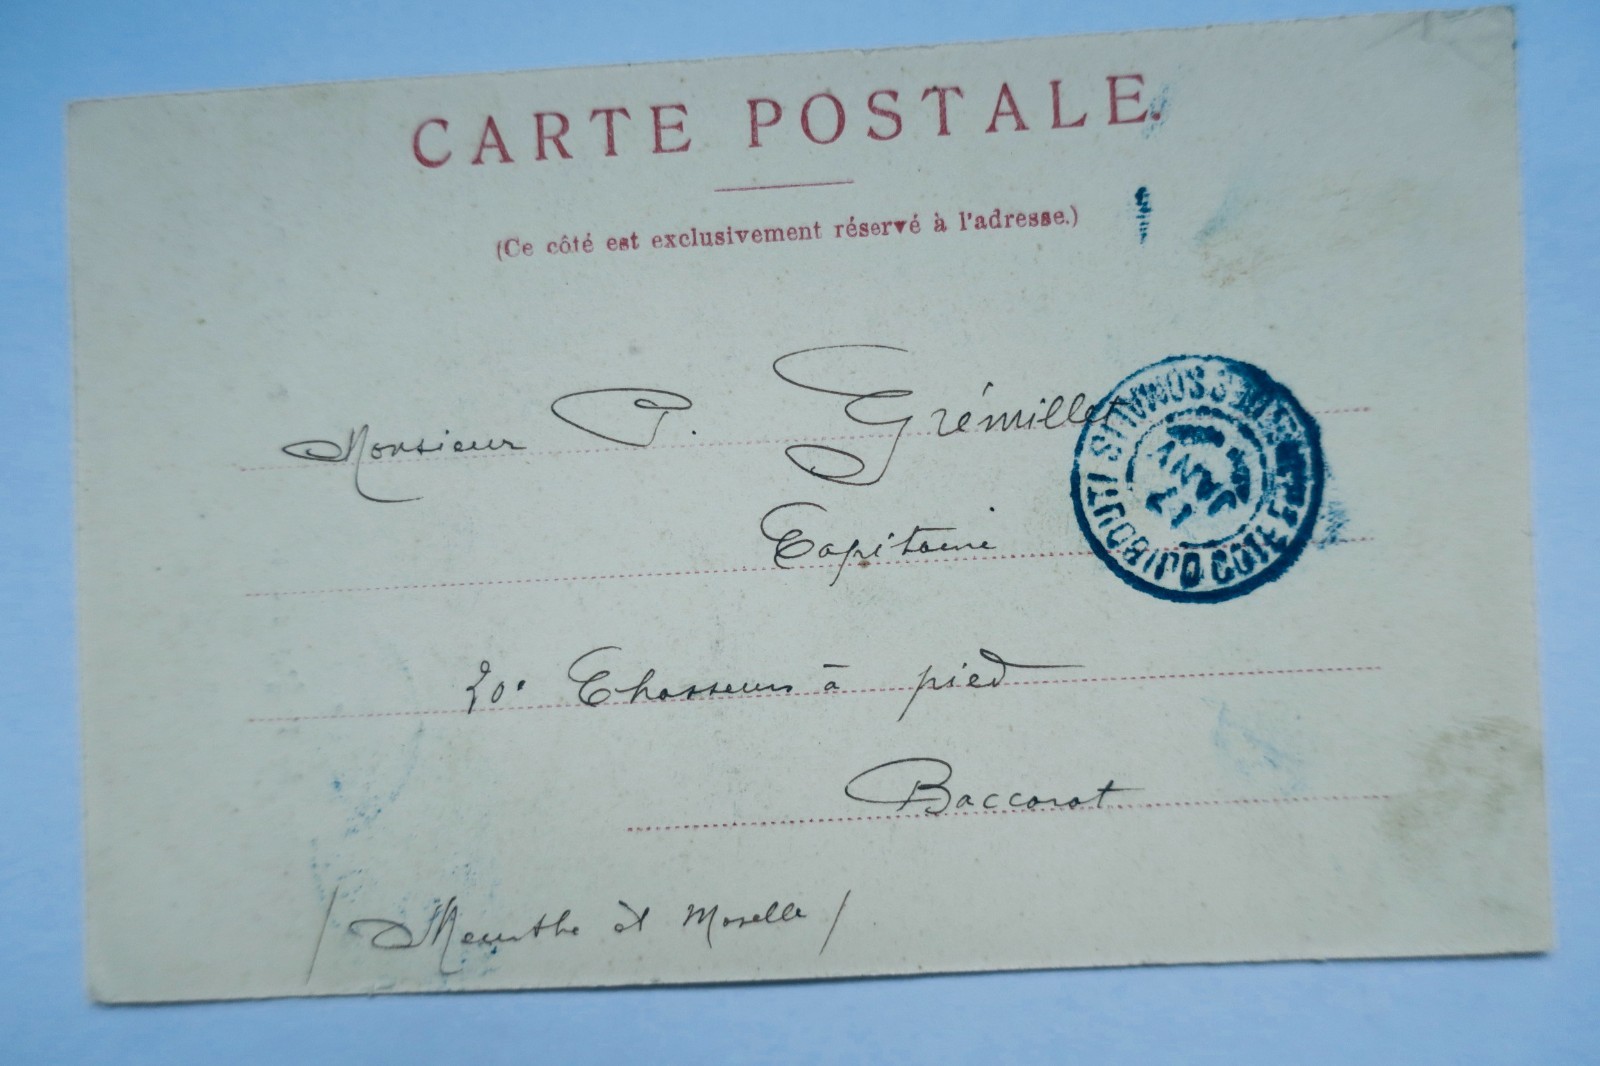 CARTE POSTALE.
(Ce côté est exclusivement réservé à l'adresse.)
Monsieur P. Grémillet
Capitaine
20e Chasseurs à pied
Baccarat
/ Meurthe et Moselle /
DJIBOUTI COTE SOMALIS
JANV